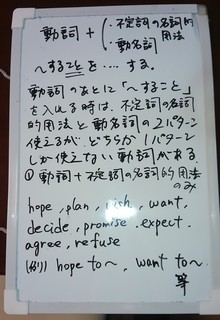 動詞 + ・不定詞の名詞的用法
・動名詞
〜することを‥‥する。
動詞のあとに「〜すること」
を入れる時は、不定詞の名詞
的用法と動名詞の2パターン
使えるが、どちらか1パターン
しか使えない動詞がある。
① 動詞+不定詞の名詞的用法
のみ
hope, plan, wish, want,
decide, promise, expect.
agree, refuse
(例) hope to〜, want to〜
等